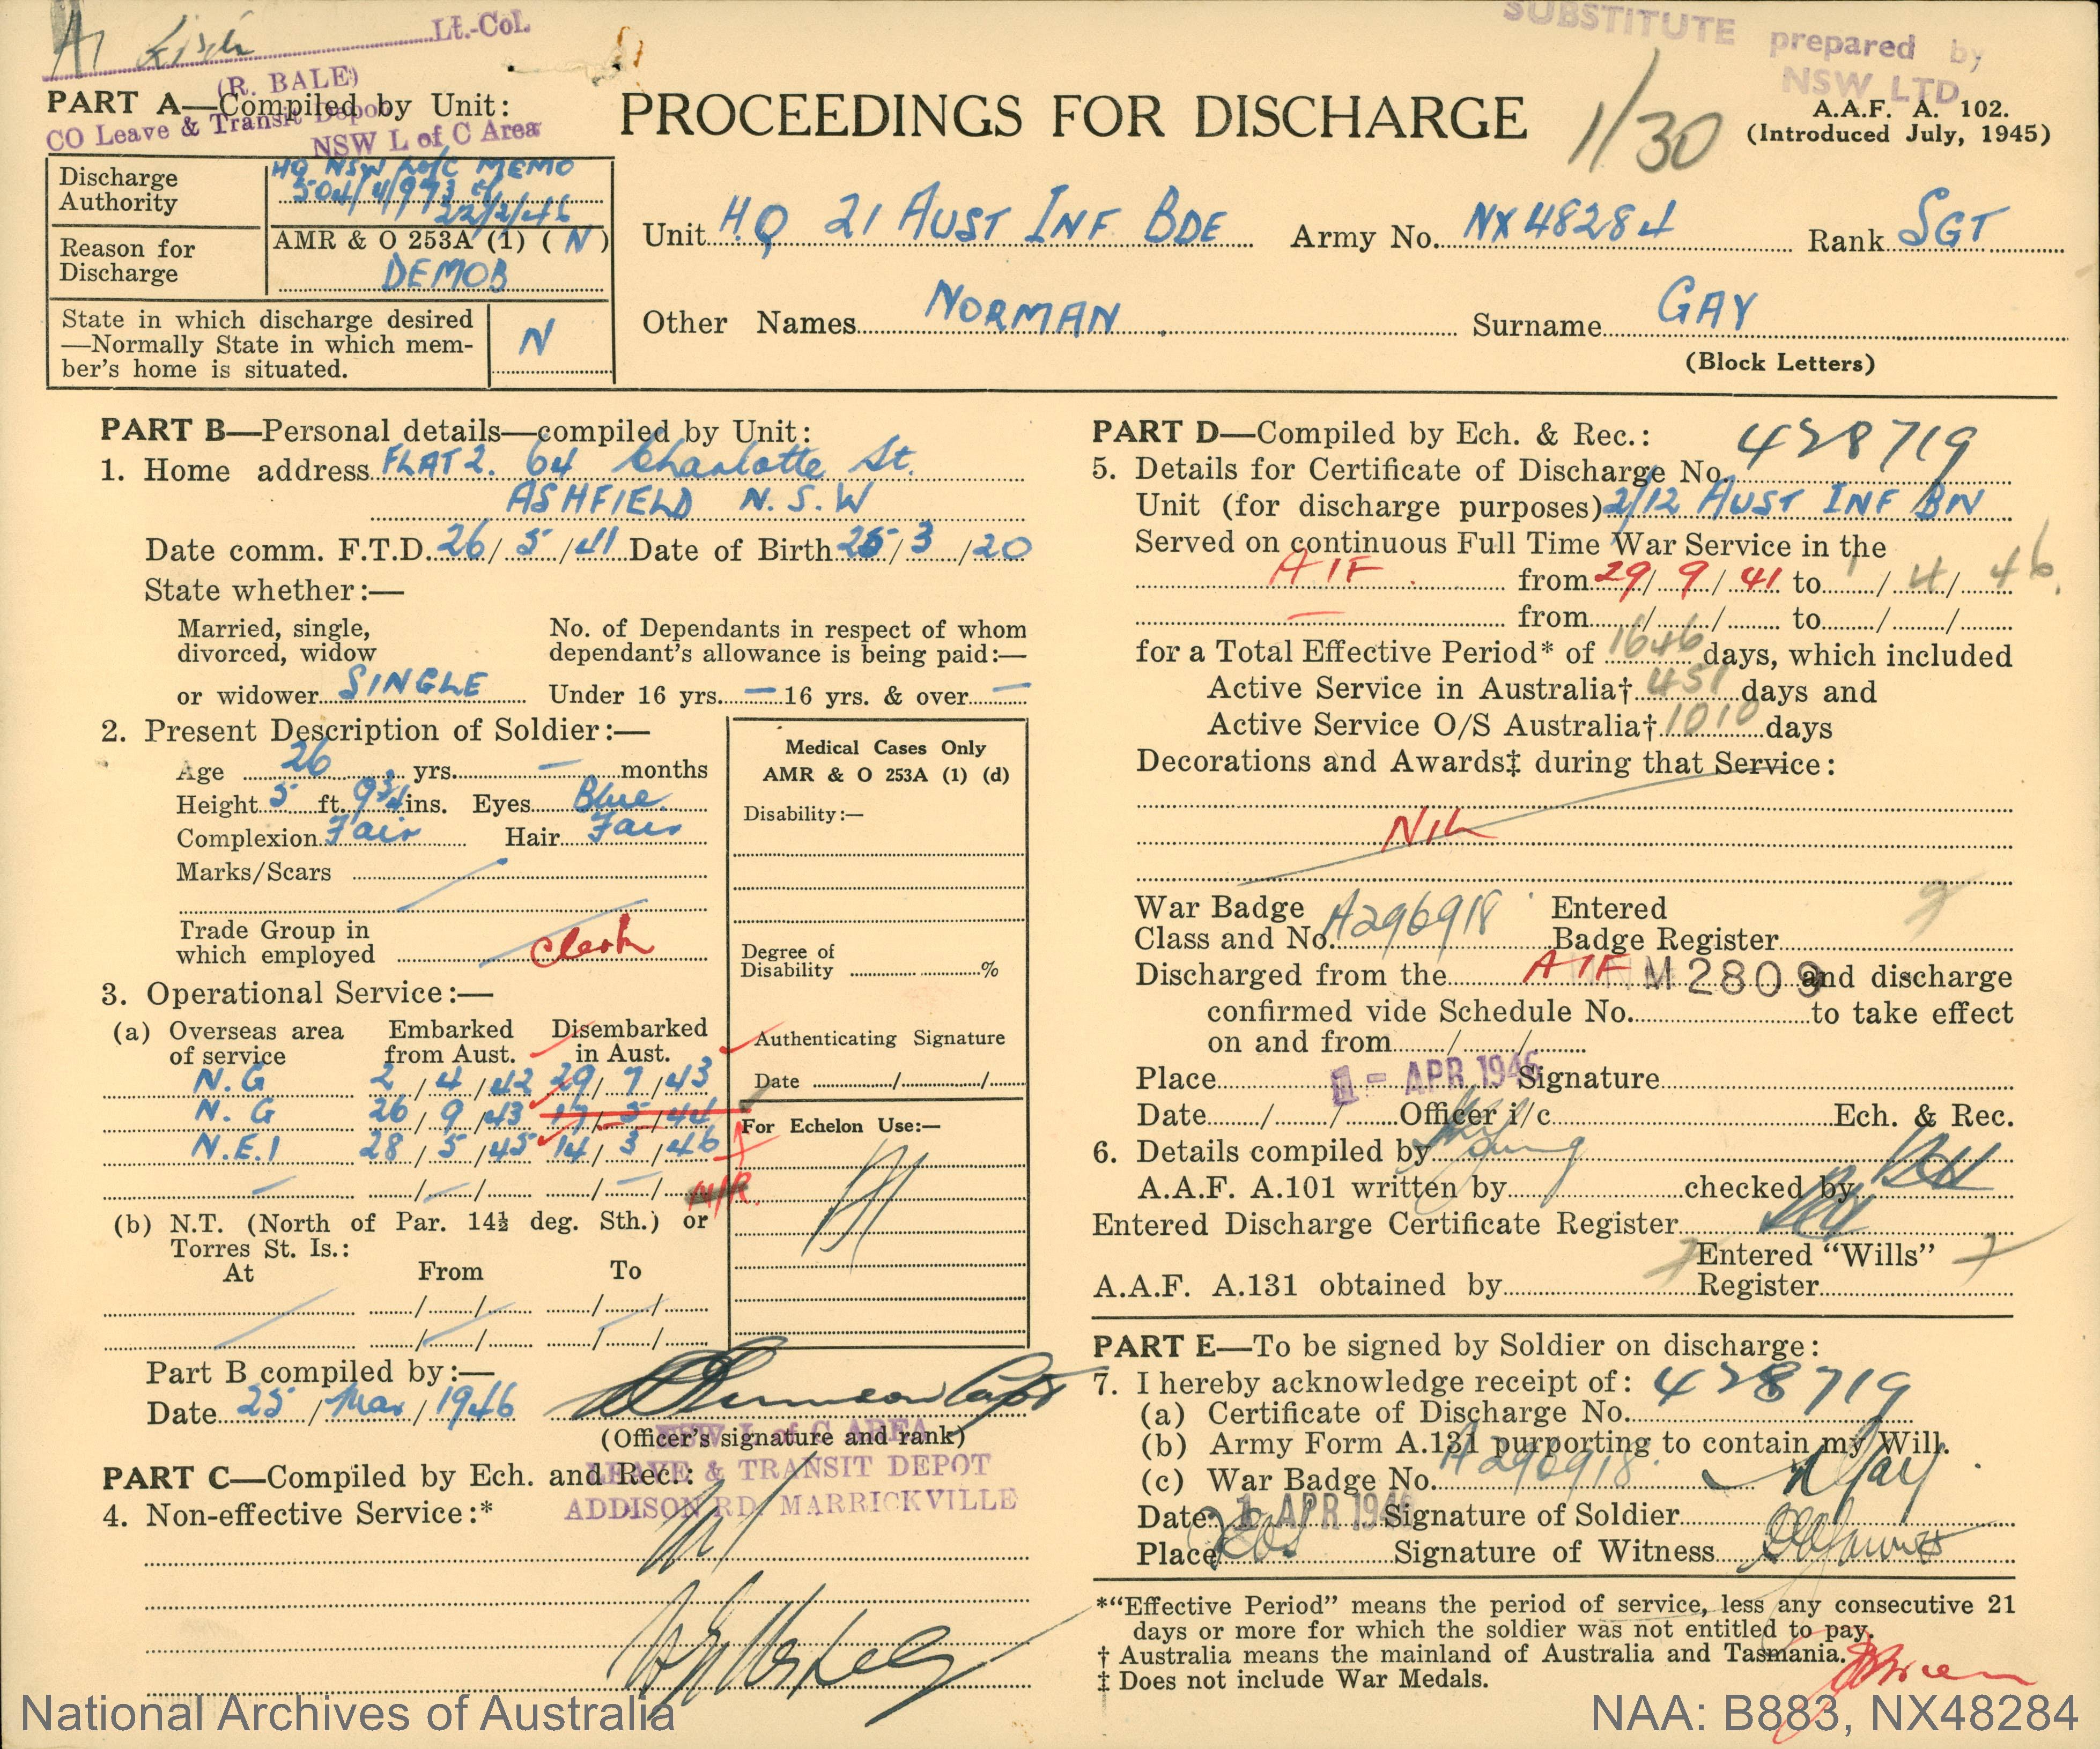 Lt.-Col.
(R. BALE)
CO Leave & Transit Depot
NSW L of C Area
SUBSTITUTE prepared by
NSW LTD
PART A—Compiled by Unit:
PROCEEDINGS FOR DISCHARGE
1/30
A.A.F. A. 102.
(Introduced July, 1945)
Discharge Authority HQ NSW L of C MEMO
504/4/973 of
22/2/46
Reason for Discharge AMR & O 253A (1) (N)
DEMOB
State in which discharge desired
—Normally State in which mem-
ber's home is situated. N
Unit H.Q 21 AUST INF BDE Army No. NX48284 Rank SGT
Other Names NORMAN Surname GAY
(Block Letters)
PART B—Personal details—compiled by Unit:
1. Home address FLAT 2. 64 Charlotte St.
ASHFIELD N.S.W
Date comm. F.T.D. 26/5/41 Date of Birth 25/3/20
State whether:—
Married, single,
divorced, widow
or widower SINGLE
No. of Dependants in respect of whom
dependant's allowance is being paid:—
Under 16 yrs. — 16 yrs. & over —
2. Present Description of Soldier:—
Age 26 yrs. — months
Height 5 ft. 9¾ ins. Eyes Blue
Complexion Fair Hair Fair
Marks/Scars
Trade Group in
which employed Clerk
3. Operational Service:—
(a) Overseas area
of service
Embarked
from Aust.
Disembarked
in Aust.
N.G 2/4/42 29/7/43
N.G 26/9/43 17/5/44
N.E.I 28/5/45 14/3/46
M/R.
(b) N.T. (North of Par. 14½ deg. Sth.) or
Torres St. Is.:
At From To
Medical Cases Only
AMR & O 253A (1) (d)
Disability:—
Degree of
Disability %
Authenticating Signature
Date / /
For Echelon Use:—
Part B compiled by:—
Date 25/Mar/1946
(Officer's signature and rank)
NSW L of C AREA
LEAVE & TRANSIT DEPOT
ADDISON RD. MARRICKVILLE
PART C—Compiled by Ech. and Rec.:
4. Non-effective Service:*
PART D—Compiled by Ech. & Rec.:
5. Details for Certificate of Discharge No. 428719
Unit (for discharge purposes) 2/12 AUST INF BN
Served on continuous Full Time War Service in the
AIF from 29/9/41 to 1/4/46.
— from / / to / /
for a Total Effective Period* of 1646 days, which included
Active Service in Australia† 451 days and
Active Service O/S Australia† 1010 days
Decorations and Awards‡ during that Service:
Nil
War Badge
Class and No. A296918 Entered
Badge Register
Discharged from the AIF M2809 and discharge
confirmed vide Schedule No. to take effect
on and from / /
Place 1 - APR 1946 Signature
Date / / Officer i/c Ech. & Rec.
6. Details compiled by
A.A.F. A.101 written by checked by
Entered Discharge Certificate Register
Entered "Wills"
A.A.F. A.131 obtained by Register
PART E—To be signed by Soldier on discharge:
7. I hereby acknowledge receipt of: 428719
(a) Certificate of Discharge No.
(b) Army Form A.131 purporting to contain my Will.
(c) War Badge No. A296918. N Gay
Date 1 APR 1946 Signature of Soldier
Place Signature of Witness
*"Effective Period" means the period of service, less any consecutive 21
days or more for which the soldier was not entitled to pay.
† Australia means the mainland of Australia and Tasmania.
‡ Does not include War Medals.
National Archives of Australia
NAA: B883, NX48284